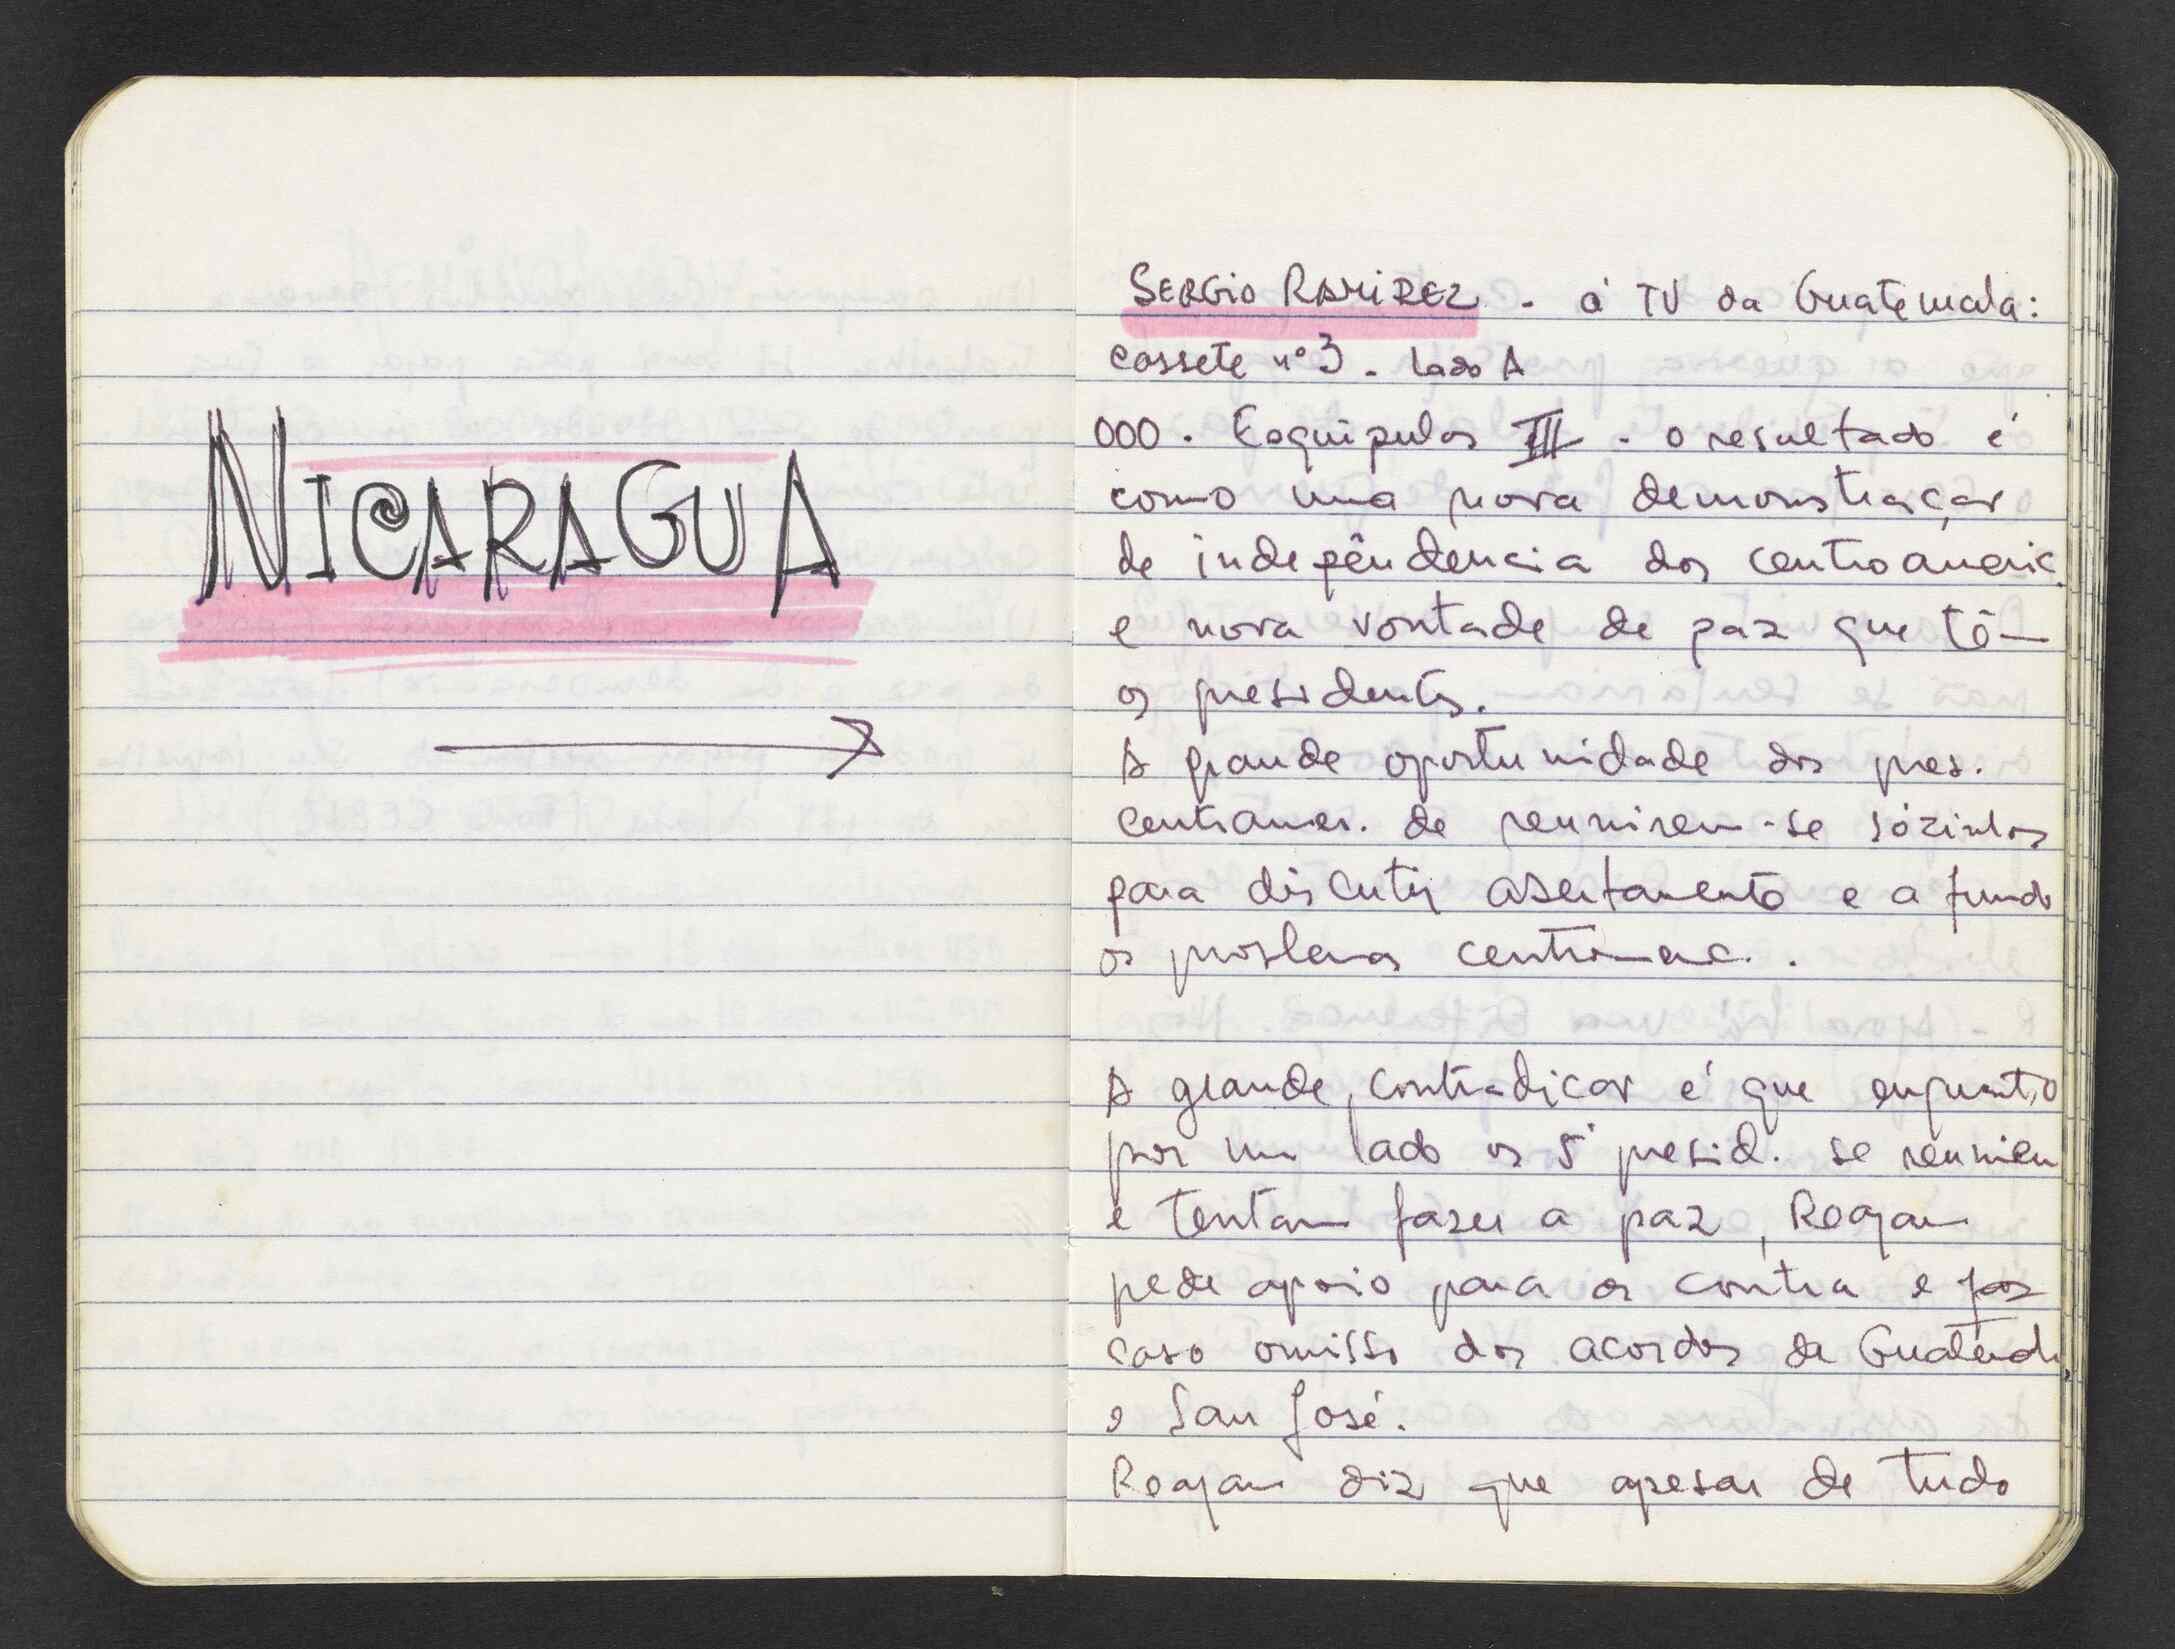 NICARAGUA
SERGIO RAMIREZ - à TV da Guatemala:
Cassete nº 3 - lado A
000. Esquipulas III - o resultado é
como uma nova demonstraçao
de indepêndencia dos centroameric.
e nova vontade de paz que tê
os presidentes.
A grande oportunidade dos pres.
centramer. de reunirem-se sózinhos
para discutir e a fundo
os problemas
A grande contradiçao é que enquanto
por um lado os 5 presid. se reunem
e tentam fazer a paz, Reagan
pede apoio para os contra e faz
caso omisso dos acordos da
e San José.
Reagan diz que apesar de tudo